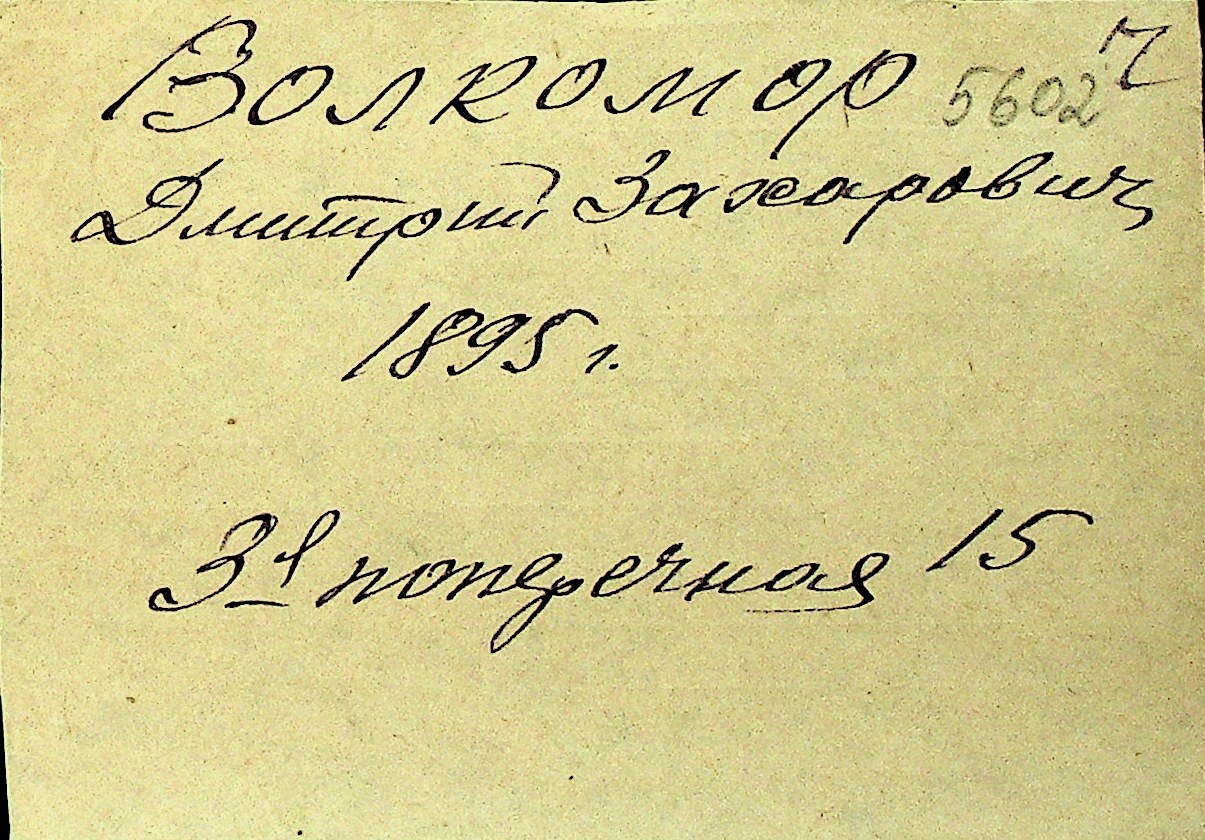 Волкомор 5602 ч
Дмитрий Захарович
1895 г.
3я поперечная 15